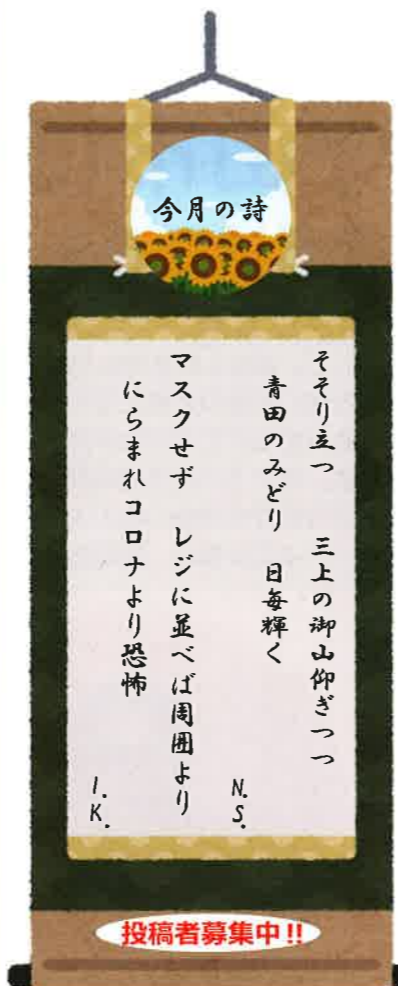 今月の詩
そそり立つ　三上の御山仰ぎつつ
青田のみどり　日毎輝く
N.S.
マスクせず　レジに並べば周囲より
にらまれコロナより恐怖
I.K.
投稿者募集中!!